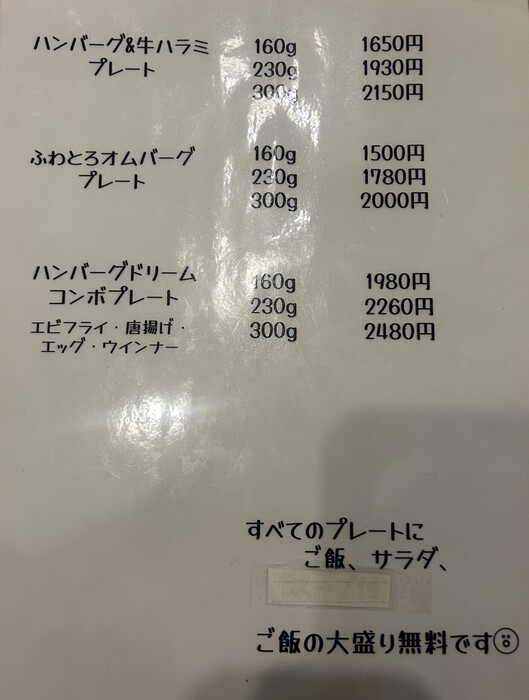 ハンバーグ&牛ハラミ 160g 1650円
プレート 230g 1930円
300g 2150円
ふわとろオムバーグ 160g 1500円
プレート 230g 1780円
300g 2000円
ハンバーグドリーム 160g 1980円
コンボプレート 230g 2260円
エビフライ・唐揚げ・ 300g 2480円
エッグ・ウインナー
すべてのプレートに
ご飯、サラダ、
ご飯の大盛り無料です